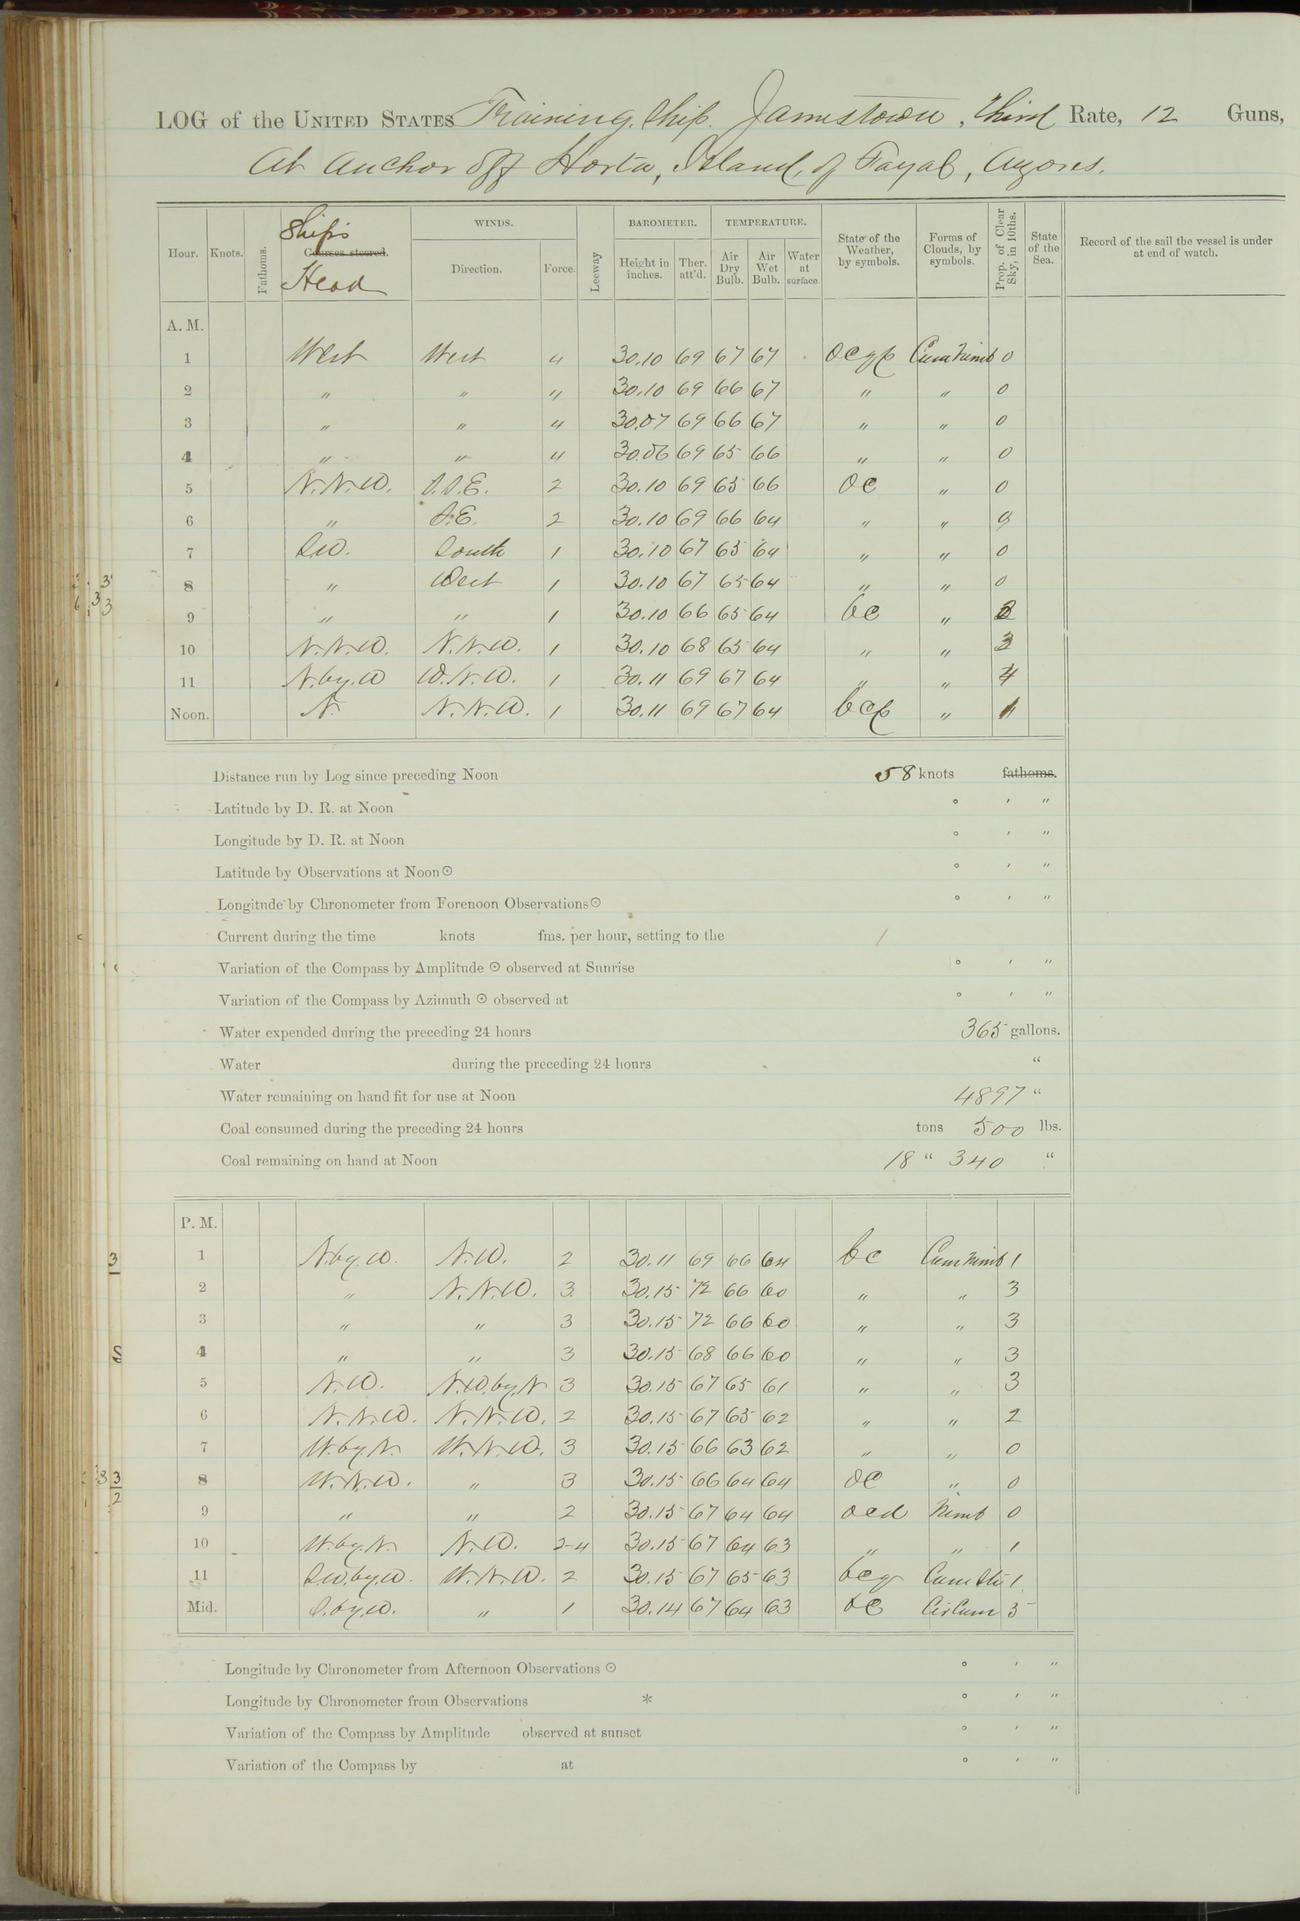 LOG of the UNITED STATES Training Ship Jamestown, Third Rate, 12 Guns,
At Anchor off Horta, Island of Fayal, Azores.
Hour. Knots. Fathoms. Ship's Courses steered. Head WINDS. Direction. Force. Leeway BAROMETER. Height in inches. Ther. att'd. TEMPERATURE. Air Dry Bulb. Air Wet Bulb. Water at surface. State of the Weather, by symbols. Forms of Clouds, by symbols. Prop. of Clear Sky, in 10ths. State of the Sea. Record of the sail the vessel is under at end of watch.
A. M.
1 West West 4 30.10 69 67 67 ocqp Cum Nimb 0
2 " " " 30.10 69 66 67 " " 0
3 " " 4 30.07 69 66 67 " " 0
4 " " 4 30.06 69 65 66 " " 0
5 N.N.W. S.S.E. 2 30.10 69 65 66 oc " 0
6 " S.E. 2 30.10 69 66 64 " "
7 SW. South 1 30.10 67 65 64 " " 0
8 " West 1 30.10 67 65 64 " " 0
9 " " 1 30.10 66 65 64 bc "
10 N.N.W. N.N.W. 1 30.10 68 65 64 " " 3
11 N.by.W W.N.W. 1 30.11 69 67 64 " " 4
Noon. N. N.N.W. 1 30.11 69 67 64 bcp " 1
Distance run by Log since preceding Noon 58 knots fathoms.
Latitude by D. R. at Noon ° ' "
Longitude by D. R. at Noon ° ' "
Latitude by Observations at Noon ☉ ° ' "
Longitude by Chronometer from Forenoon Observations ☉ ° ' "
Current during the time knots fms. per hour, setting to the
Variation of the Compass by Amplitude ☉ observed at Sunrise ° ' "
Variation of the Compass by Azimuth ☉ observed at ° ' "
Water expended during the preceding 24 hours 365 gallons.
Water during the preceding 24 hours "
Water remaining on hand fit for use at Noon 4897 "
Coal consumed during the preceding 24 hours tons 500 lbs.
Coal remaining on hand at Noon 18 " 340 "
P. M.
1 N.by.W. N.W. 2 30.11 69 66 64 bc Cum Nimb 1
2 " N.N.W. 3 30.15 72 66 60 " " 3
3 " " 3 30.15 72 66 60 " " 3
4 " " 3 30.15 68 66 60 " " 3
5 N.W. N.W.by.N 3 30.15 67 65 61 " " 3
6 N.N.W. N.N.W. 2 30.15 67 65 62 " " 2
7 W.by.N. W.N.W. 3 30.15 66 63 62 " " 0
8 W.N.W. " 3 30.15 66 64 64 oc " 0
9 " " 2 30.15 67 64 64 ocd Nimb 0
10 W.by.N. N.W. 2-4 30.15 67 64 63 " " 1
11 S.W.by.W. W.N.W. 2 30.15 67 65 63 bcq Cum Str 1
Mid. S.by.W. " 1 30.14 67 64 63 bc Cir Cum 5
Longitude by Chronometer from Afternoon Observations ☉ ° ' "
Longitude by Chronometer from Observations * ° ' "
Variation of the Compass by Amplitude observed at sunset ° ' "
Variation of the Compass by at ° ' "